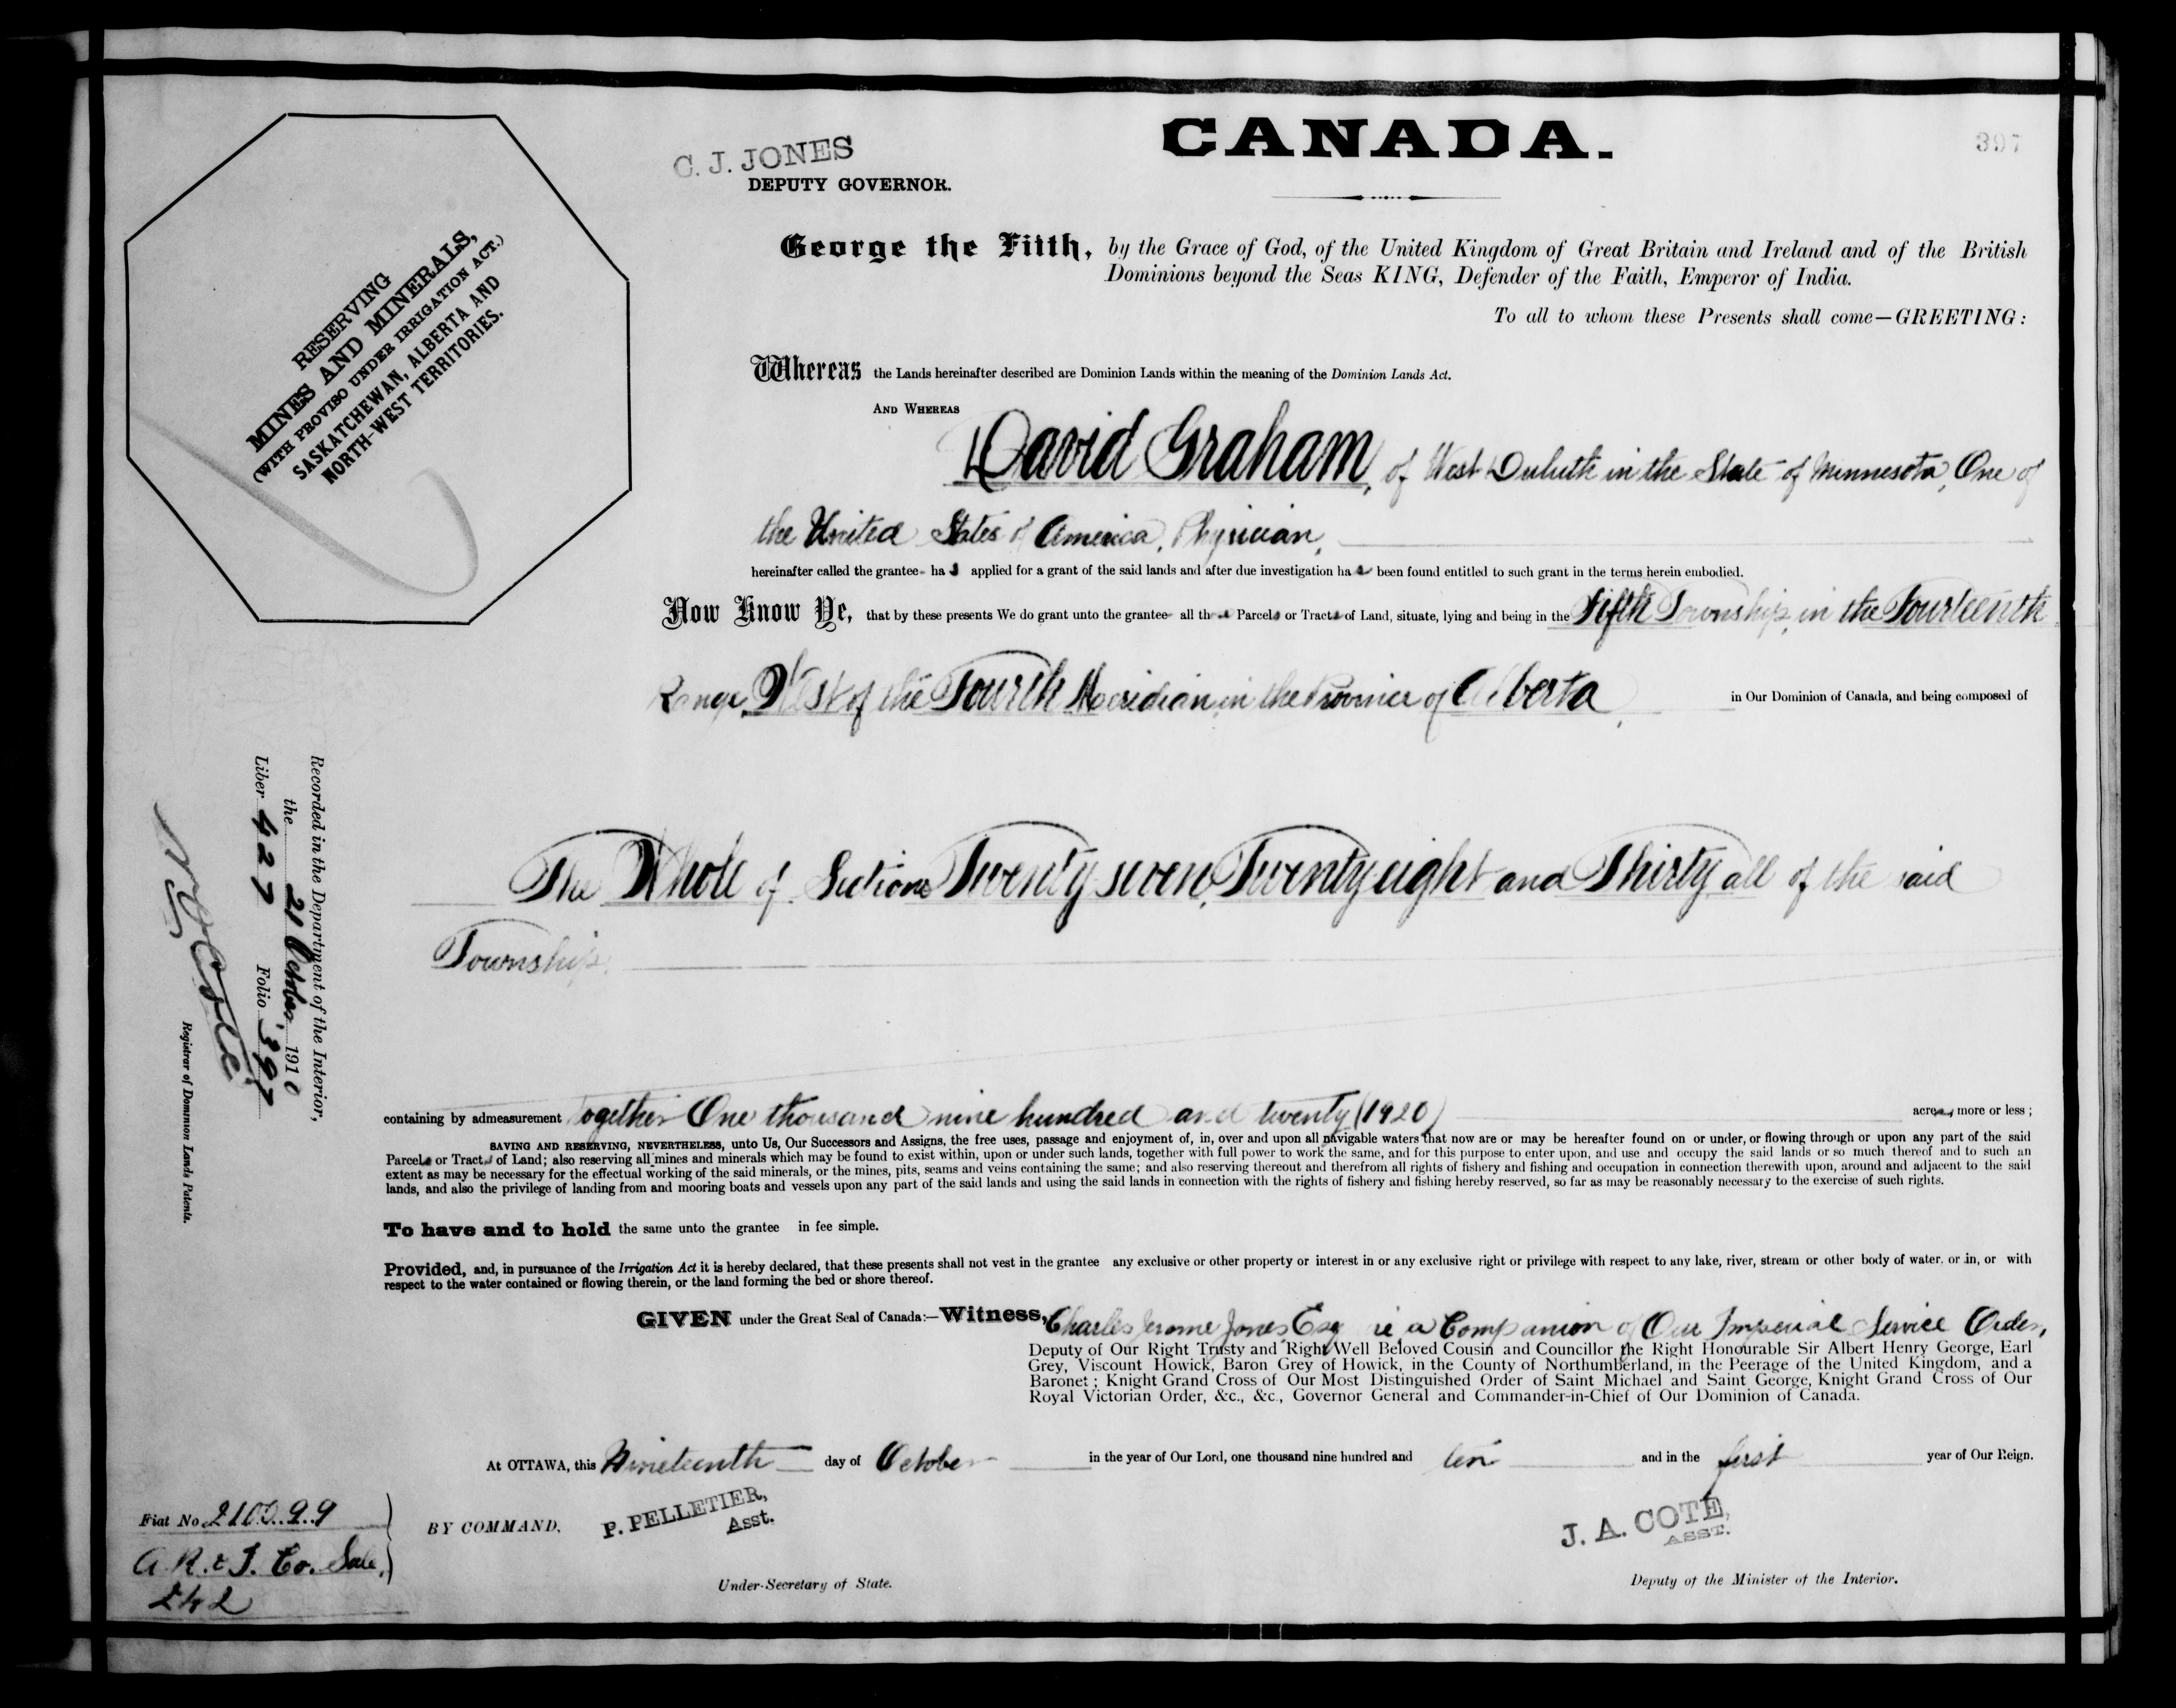 CANADA.
397
C. J. JONES
DEPUTY GOVERNOR.
George the Fifth, by the Grace of God, of the United Kingdom of Great Britain and Ireland and of the British
Dominions beyond the Seas KING, Defender of the Faith, Emperor of India.
To all to whom these Presents shall come—GREETING:
RESERVING
MINES AND MINERALS,
(WITH PROVISO UNDER IRRIGATION ACT.)
SASKATCHEWAN, ALBERTA AND
NORTH-WEST TERRITORIES.
Whereas the Lands hereinafter described are Dominion Lands within the meaning of the Dominion Lands Act.
AND WHEREAS
David Graham, of West Duluth in the State of Minnesota, One of
the United States of America, Physician,
hereinafter called the grantee ha s applied for a grant of the said lands and after due investigation ha s been found entitled to such grant in the terms herein embodied.
Now Know Ye, that by these presents We do grant unto the grantee all those Parcels or Tracts of Land, situate, lying and being in the Fifth Township, in the Fourteenth
Range, West of the Fourth Meridian, in the Province of Alberta, in Our Dominion of Canada, and being composed of
The Whole of Sections Twenty seven, Twenty eight and Thirty all of the said
Township.
Recorded in the Department of the Interior,
the 21 October 1910
Liber 427 Folio 397
Registrar of Dominion Lands Patents.
containing by admeasurement together One thousand nine hundred and twenty (1920) acres, more or less;
SAVING AND RESERVING, NEVERTHELESS, unto Us, Our Successors and Assigns, the free uses, passage and enjoyment of, in, over and upon all navigable waters that now are or may be hereafter found on or under, or flowing through or upon any part of the said
Parcels or Tracts of Land; also reserving all mines and minerals which may be found to exist within, upon or under such lands, together with full power to work the same, and for this purpose to enter upon, and use and occupy the said lands or so much thereof and to such an
extent as may be necessary for the effectual working of the said minerals, or the mines, pits, seams and veins containing the same; and also reserving thereout and therefrom all rights of fishery and fishing and occupation in connection therewith upon, around and adjacent to the said
lands, and also the privilege of landing from and mooring boats and vessels upon any part of the said lands and using the said lands in connection with the rights of fishery and fishing hereby reserved, so far as may be reasonably necessary to the exercise of such rights.
To have and to hold the same unto the grantee in fee simple.
Provided, and, in pursuance of the Irrigation Act it is hereby declared, that these presents shall not vest in the grantee any exclusive or other property or interest in or any exclusive right or privilege with respect to any lake, river, stream or other body of water, or in, or with
respect to the water contained or flowing therein, or the land forming the bed or shore thereof.
GIVEN under the Great Seal of Canada:—Witness, Charles Jerome Jones, Esquire, a Companion of Our Imperial Service Order,
Deputy of Our Right Trusty and Right Well Beloved Cousin and Councillor the Right Honourable Sir Albert Henry George, Earl
Grey, Viscount Howick, Baron Grey of Howick, in the County of Northumberland, in the Peerage of the United Kingdom, and a
Baronet; Knight Grand Cross of Our Most Distinguished Order of Saint Michael and Saint George, Knight Grand Cross of Our
Royal Victorian Order, &c., &c., Governor General and Commander-in-Chief of Our Dominion of Canada.
At OTTAWA, this Nineteenth day of October in the year of Our Lord, one thousand nine hundred and ten and in the first year of Our Reign.
Fiat No. 210099
A. R. & I. Co. Sale,
242
BY COMMAND,
P. PELLETIER,
Asst.
Under-Secretary of State.
J. A. COTE,
ASST.
Deputy of the Minister of the Interior.